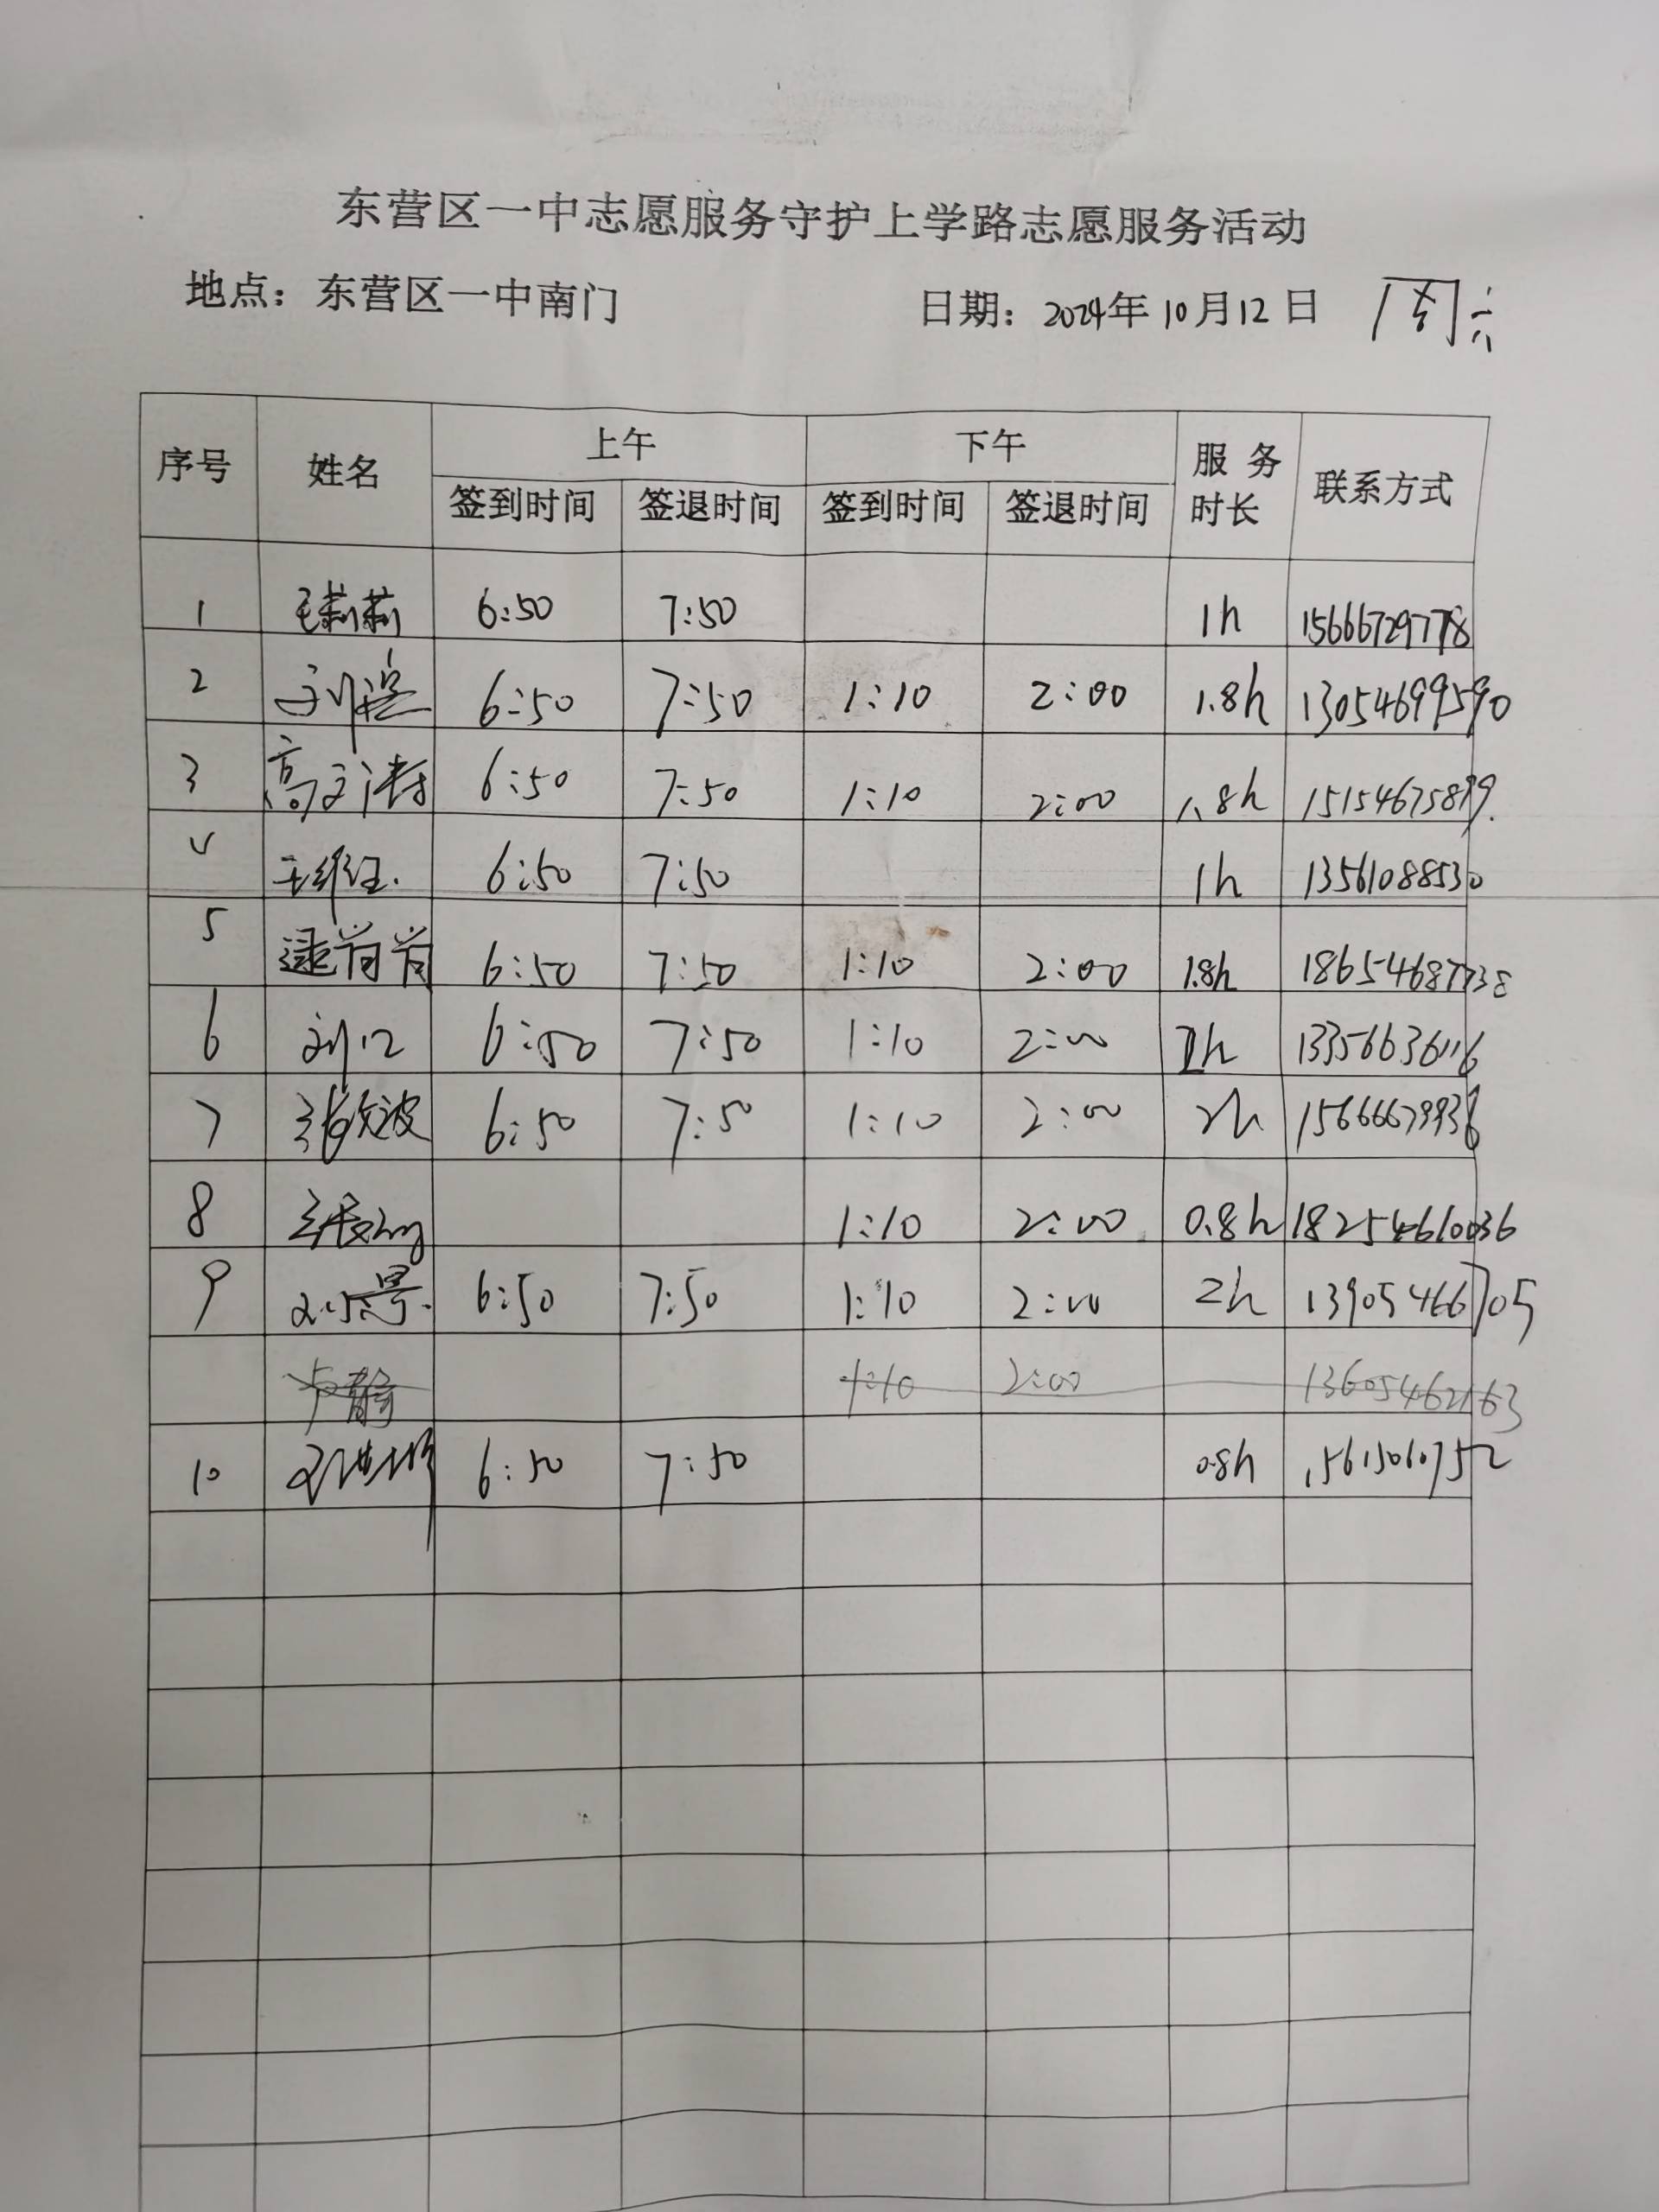 东营区一中志愿服务守护上学路志愿服务活动
地点：东营区一中南门 日期：2024年10月12日 周六
序号 姓名 上午 下午 服务时长 联系方式
签到时间 签退时间 签到时间 签退时间
1 毛莉莉 6:50 7:50 1h 15666729778
2 6:50 7:50 1:10 2:00 1.8h 13054699590
3 6:50 7:50 1:10 2:00 1.8h
4 6:50 7:50 1h 13561088530
5 逯肖肖 6:50 7:50 1:10 2:00 1.8h 18654687738
6 6:50 7:50 1:10 2:00 2h 13356636116
7 张文波 6:50 7:50 1:10 2:00 2h
8 1:10 2:00 0.8h 18254610036
9 6:50 7:50 1:10 2:00 2h 13905466705
卢静 1:10 2:00 13605462163
10 6:50 7:50 0.8h 15615060752